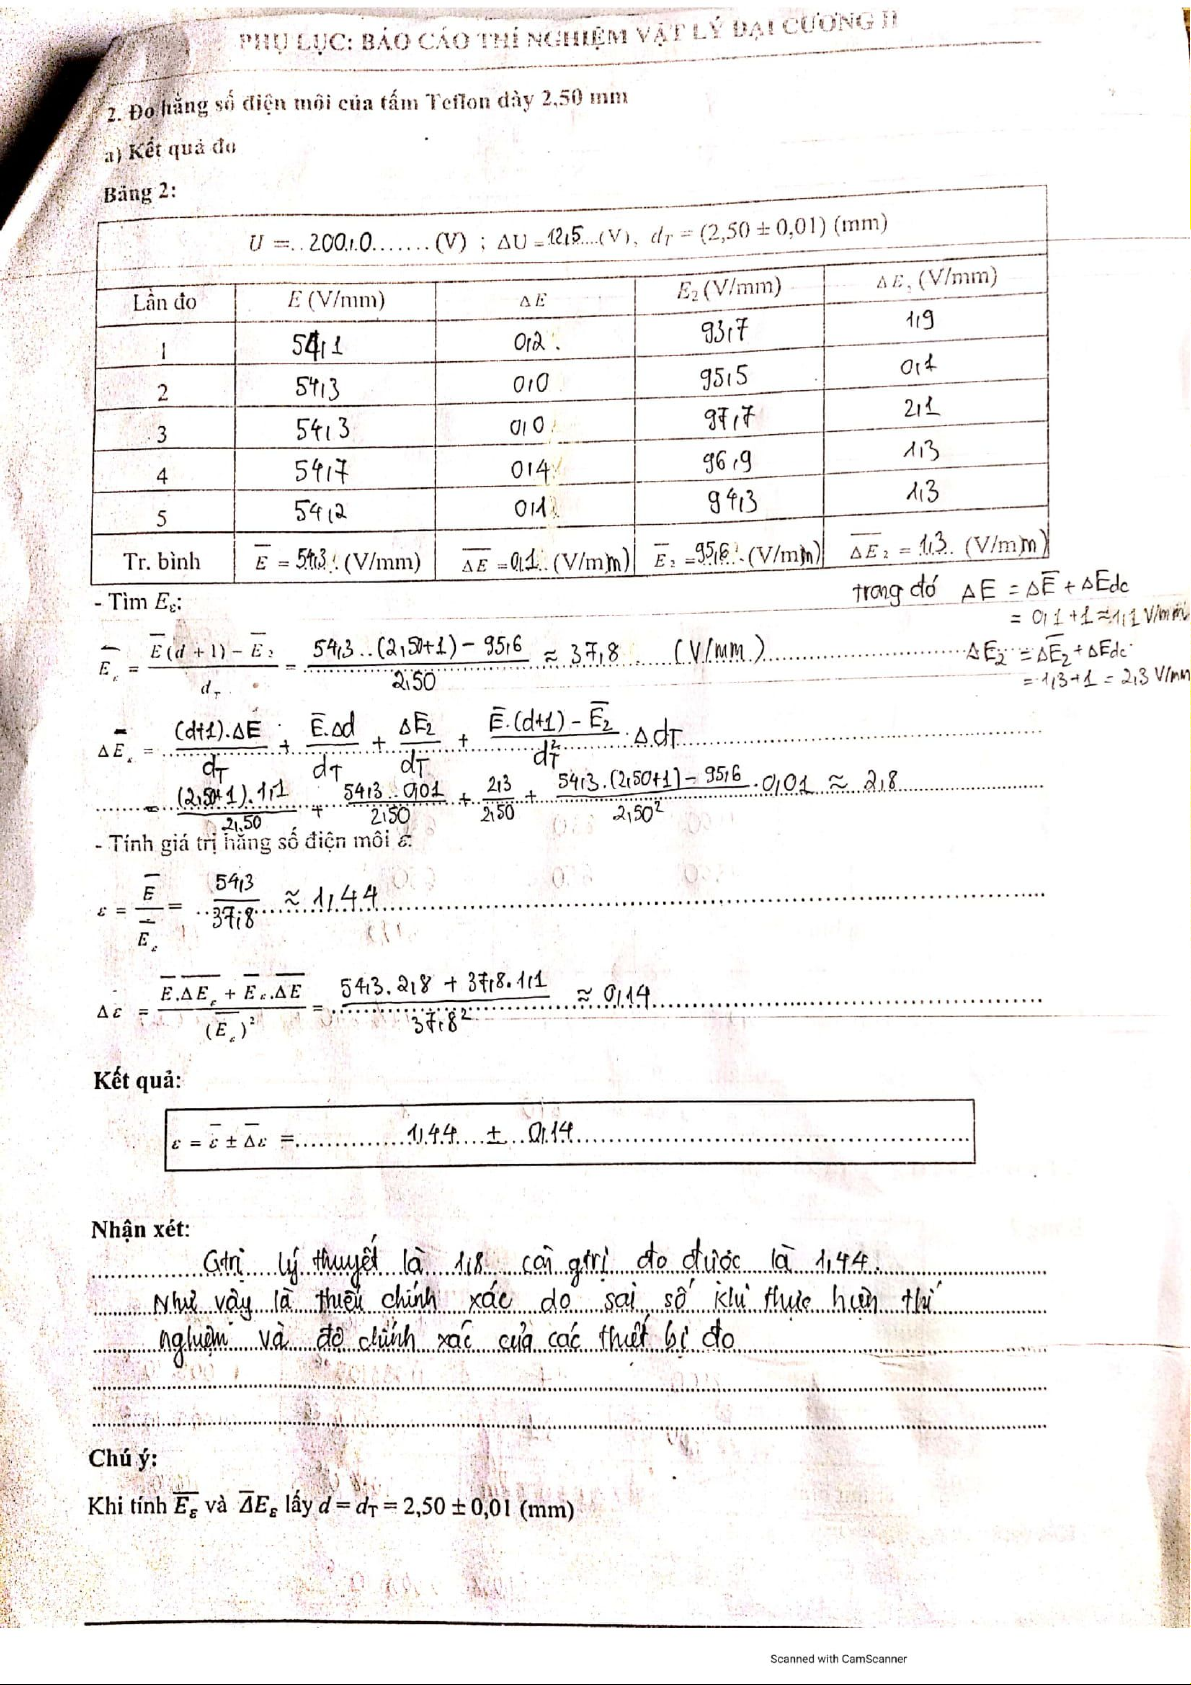 PHỤ LỤC: BÁO CÁO THÍ NGHIỆM VẬT LÝ ĐẠI CƯƠNG II
2. Đo hằng số điện môi của tấm Teflon dày 2,50 mm
a) Kết quả đo
Bảng 2:
U = 200,0 (V) ; ΔU = 12,5 (V), d_T = (2,50 ± 0,01) (mm)
Lần đo E (V/mm) ΔE E₂ (V/mm) ΔE₂ (V/mm)
1 54,1 0,2 93,7 1,9
2 54,3 0,0 95,5 0,1
3 54,3 0,0 97,7 2,1
4 54,7 0,4 96,9 1,3
5 54,2 0,1 94,3 1,3
Tr. bình E̅ = 54,3 (V/mm) Δ̅E̅ = 0,1 (V/mm) E̅₂ = 95,6 (V/mm) Δ̅E̅₂ = 1,3 (V/mm)
- Tìm E_ε: trong đó ΔE = ΔE̅ + ΔEdc
= 0,1 + 1 ≈ 1,1 V/mm
E̅_ε = (E̅(d + 1) - E̅₂)/d_T = (54,3..(2,50+1) - 95,6)/2,50 ≈ 37,8 (V/mm) ΔE₂ = ΔE̅₂ + ΔEdc
= 1,3 + 1 = 2,3 V/mm
ΔE̅_ε = (d+1).ΔE/d_T + E̅.Δd/d_T + ΔE₂/d_T + (E̅.(d+1) - E̅₂)/d_T² . Δd_T
= (2,50+1).1,1/2,50 + 54,3.0,01/2,50 + 2,3/2,50 + (54,3.(2,50+1) - 95,6)/2,50² . 0,01 ≈ 2,8
- Tính giá trị hằng số điện môi ε:
ε = E̅/E̅_ε = 54,3/37,8 ≈ 1,44
Δε = (E̅.Δ̅E̅_ε + E̅_ε.Δ̅E̅)/(E̅_ε)² = (54,3.2,8 + 37,8.1,1)/37,8² ≈ 0,14
Kết quả:
ε = ε̅ ± Δ̅ε = 1,44 ± 0,14
Nhận xét:
Gtrị lý thuyết là 1,8 còn gtrị đo được là 1,44.
Như vậy là thiếu chính xác do sai số khi thực hiện thí
nghiệm và độ chính xác của các thiết bị đo
Chú ý:
Khi tính E̅_ε và Δ̅E_ε lấy d = d_T = 2,50 ± 0,01 (mm)
Scanned with CamScanner